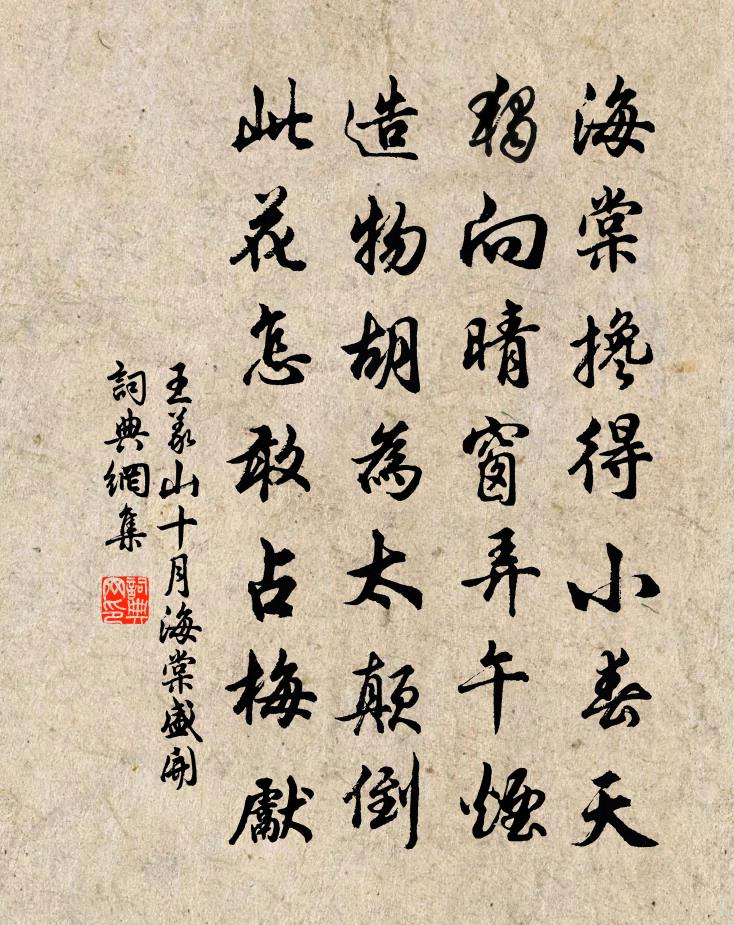 海棠攙得小春天
獨向晴窗弄午煙
造物胡為太顛倒
此花怎敢占梅獻
王義山十月海棠盛開
詞典網集